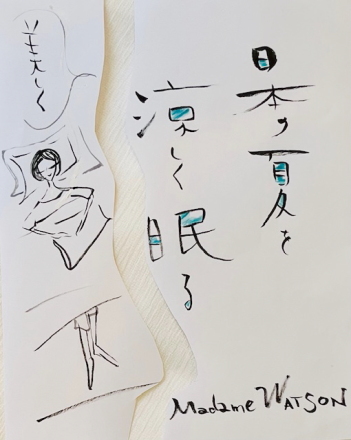 日本の夏を
涼しく眠る
美しく
Madame WATSON